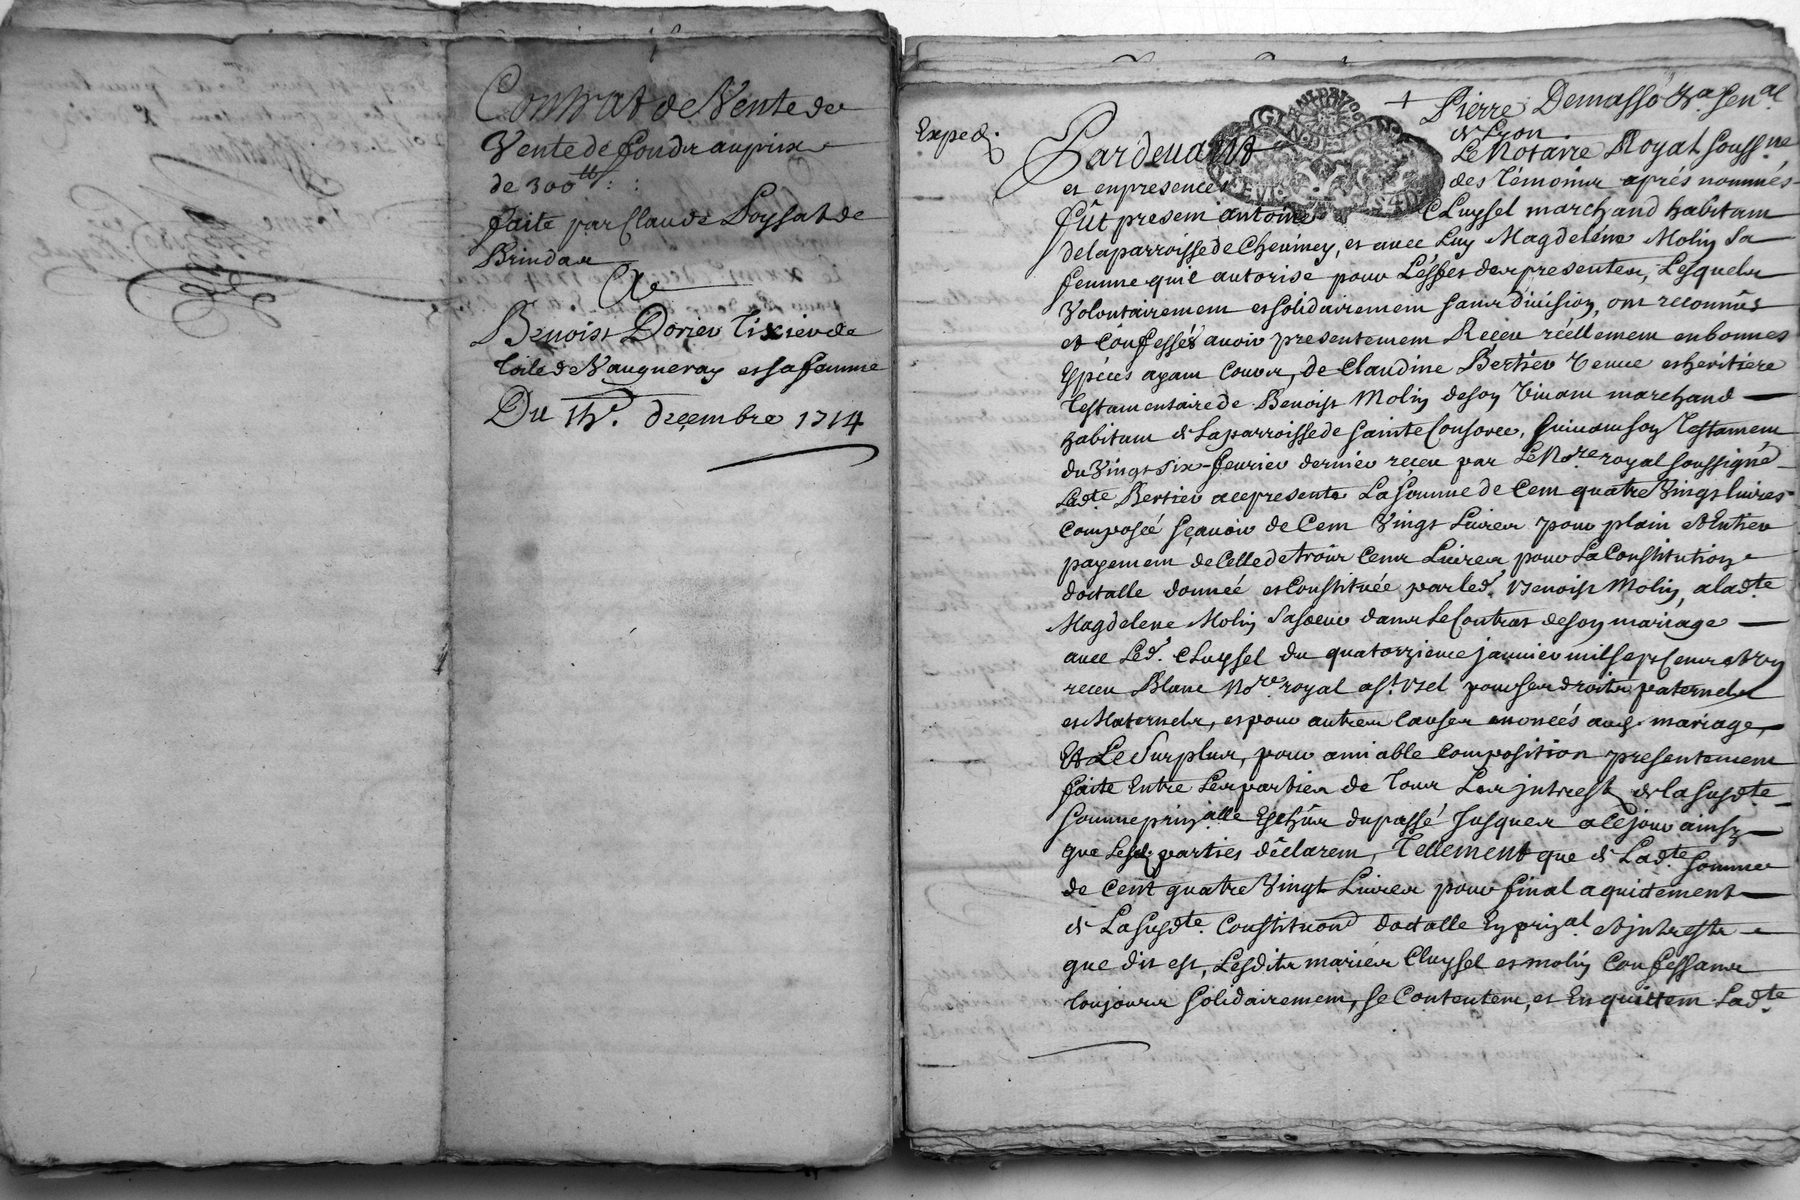 Contrat de Vente de
Vente de fondz au prix
de 300 tt
faite par Claude Loyssat de
Brindas
A
Benoist Dorier Tixier de
toile de Vaugneray et sa femme
Du 11e. decembre 1714
Exped.
Pierre Demasso
de Lyon
Pardevant Le Notaire Royal soussne
et en presence des Témoins aprés nommés
Fût present antoine Cluysel marchand habitant
de la parroisse de Cheviney, et avec Luy Magdelene Molin Sa
femme qu'il autorise pour L'effet des presentes, Lesquels
Volontairement et solidairement sans division, ont reconnûs
et Confessés avoir presentement Receu réellement en bonnes
Espéces ayant Cours, de Claudine Bertier Veuve et heritiere
Testamentaire de Benoist Molin de son Vivant marchand
habitant de La parroisse de Sainte Consorce, suivant son Testament
du Vingt six fevrier dernier reçeu par Le Nore royal soussigné
Ladte Bertier acepresente La somme de Cent quatre Vingt livres
Composée sçavoir de Cent Vingt Livres pour plain et Entier
payement de Celle de trois Cent Livres pour La Constitution
dottalle donnée et Constituée par led. Benoist Molin, a ladte
Magdelene Molin sa soeur dans le Contrat de son mariage
avec Led. Cluysel du quatorzieme janvier mil sept Cent et un
receu Blanc Nore royal a st. bel pour ses droits paternels
et Maternels, et pour autres Causes enoncés aud. mariage,
Et Le Surplus, pour amiable Composition presentement
faite Entre Les parties de tous Les jntrests de la susdte
Somme prinalle Eschûs du passé Jusques a ce jour ainsy
que Lesd. parties déclarent, Tellement que de Ladte somme
de Cent quatre Vingt Livres pour final aquittement
de La susdte. Constituon dottalle En prinal et jntrests
que dit est, Lesdits mariés Cluysel et molin Confessant
toujours Solidairement, se Contentent, et En quittent Ladte